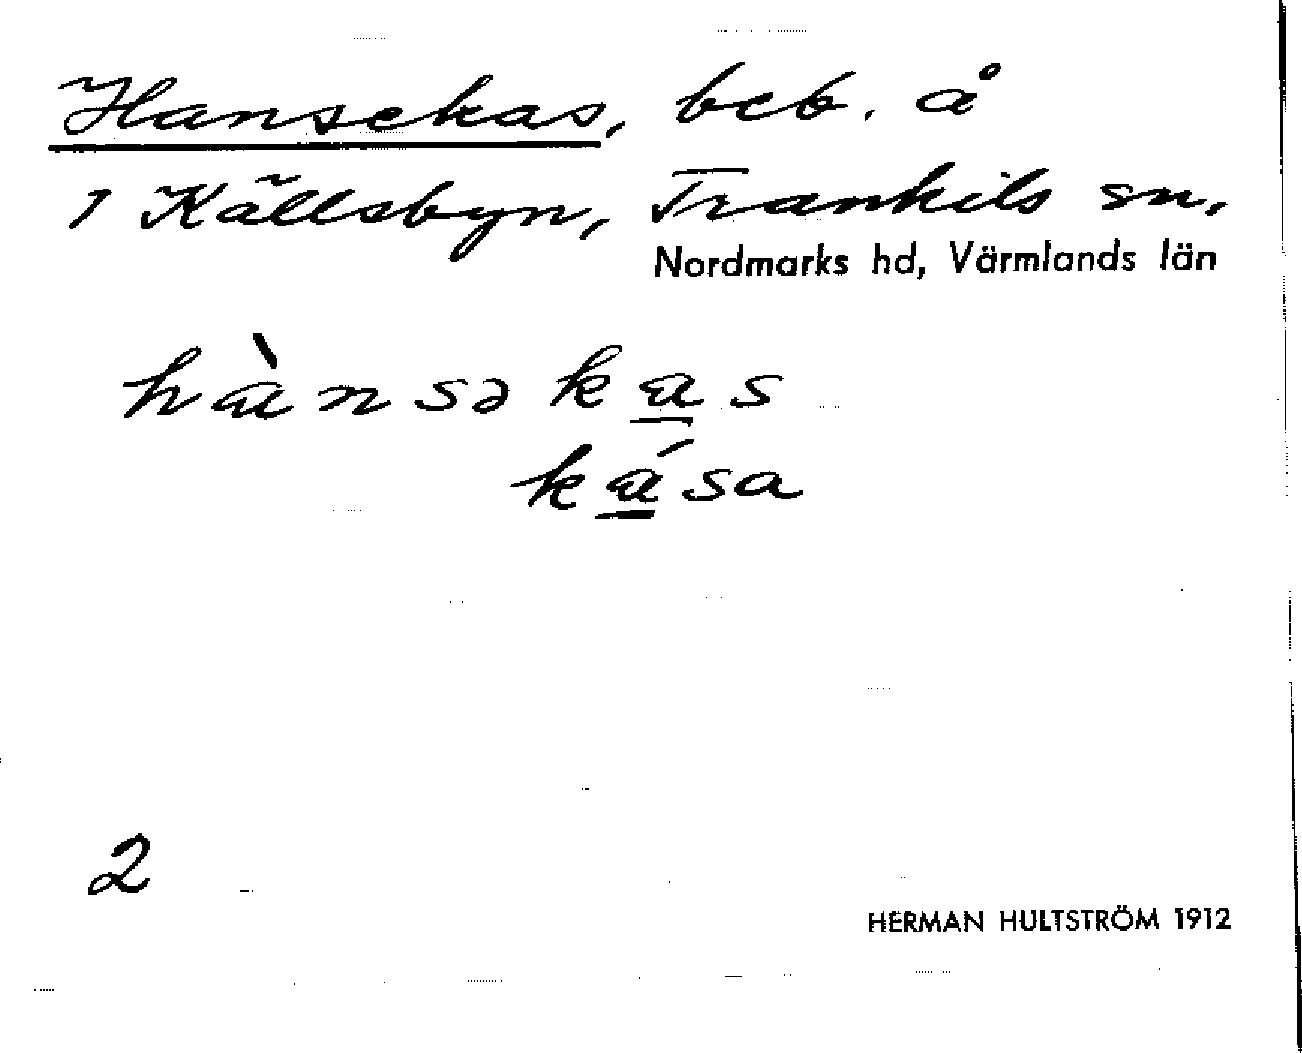 Hansekas, beb. å
1 Källsbyn, Trankils sn,
Nordmarks hd, Värmlands län
hànsəkas
kása
2
HERMAN HULTSTRÖM 1912